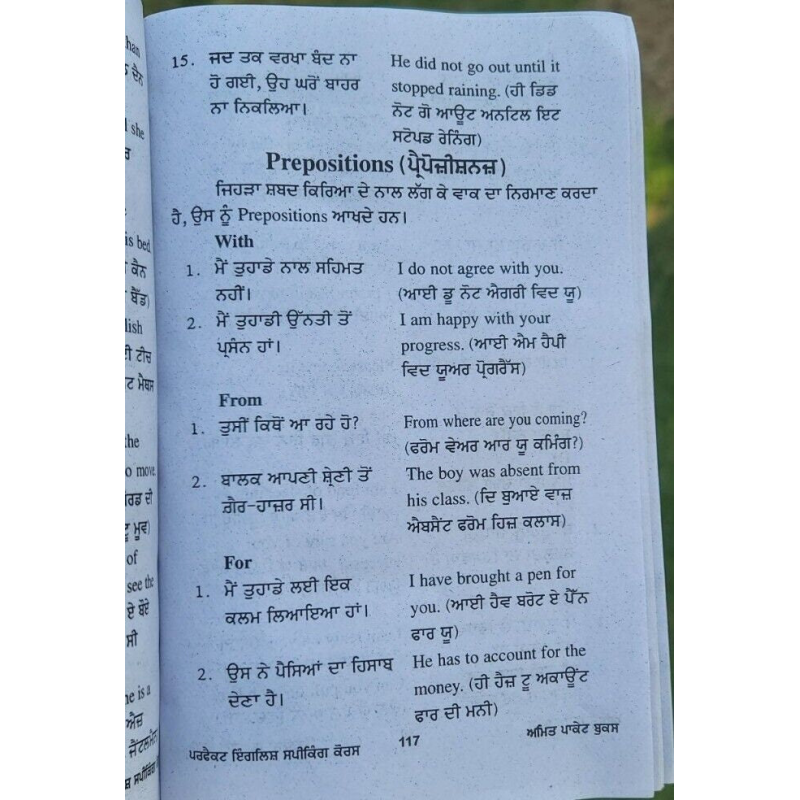 15. ਜਦ ਤਕ ਵਰਖਾ ਬੰਦ ਨਾ He did not go out until it
ਹੋ ਗਈ, ਉਹ ਘਰੋਂ ਬਾਹਰ stopped raining. (ਹੀ ਡਿਡ
ਨਾ ਨਿਕਲਿਆ। ਨੋਟ ਗੋ ਆਊਟ ਅਨਟਿਲ ਇਟ
ਸਟੋਪਡ ਰੇਨਿੰਗ)
Prepositions (ਪ੍ਰੈਪੋਜ਼ੀਸ਼ਨਜ਼)
ਜਿਹੜਾ ਸ਼ਬਦ ਕਿਰਿਆ ਦੇ ਨਾਲ ਲੱਗ ਕੇ ਵਾਕ ਦਾ ਨਿਰਮਾਣ ਕਰਦਾ
ਹੈ, ਉਸ ਨੂੰ Prepositions ਆਖਦੇ ਹਨ।
With
1. ਮੈਂ ਤੁਹਾਡੇ ਨਾਲ ਸਹਿਮਤ I do not agree with you.
ਨਹੀਂ। (ਆਈ ਡੂ ਨੋਟ ਐਗਰੀ ਵਿਦ ਯੂ)
2. ਮੈਂ ਤੁਹਾਡੀ ਉੱਨਤੀ ਤੋਂ I am happy with your
ਪ੍ਰਸੰਨ ਹਾਂ। progress. (ਆਈ ਐਮ ਹੈਪੀ
ਵਿਦ ਯੂਅਰ ਪ੍ਰੋਗਰੈੱਸ)
From
1. ਤੁਸੀਂ ਕਿਥੋਂ ਆ ਰਹੇ ਹੋ? From where are you coming?
(ਫਰੋਮ ਵੇਅਰ ਆਰ ਯੂ ਕਮਿੰਗ?)
2. ਬਾਲਕ ਆਪਣੀ ਸ਼੍ਰੇਣੀ ਤੋਂ The boy was absent from
ਗ਼ੈਰ-ਹਾਜ਼ਰ ਸੀ। his class. (ਦਿ ਬੁਆਏ ਵਾਜ਼
ਐਬਸੈਂਟ ਫਰੋਮ ਹਿਜ਼ ਕਲਾਸ)
For
1. ਮੈਂ ਤੁਹਾਡੇ ਲਈ ਇਕ I have brought a pen for
ਕਲਮ ਲਿਆਇਆ ਹਾਂ। you. (ਆਈ ਹੈਵ ਬਰੋਟ ਏ ਪੈੱਨ
ਫਾਰ ਯੂ)
2. ਉਸ ਨੇ ਪੈਸਿਆਂ ਦਾ ਹਿਸਾਬ He has to account for the
ਦੇਣਾ ਹੈ। money. (ਹੀ ਹੈਜ਼ ਟੂ ਅਕਾਊਂਟ
ਫਾਰ ਦੀ ਮਨੀ)
ਪਰਫੈਕਟ ਇੰਗਲਿਸ਼ ਸਪੀਕਿੰਗ ਕੋਰਸ 117 ਅਮਿਤ ਪਾਕੇਟ ਬੁਕਸ